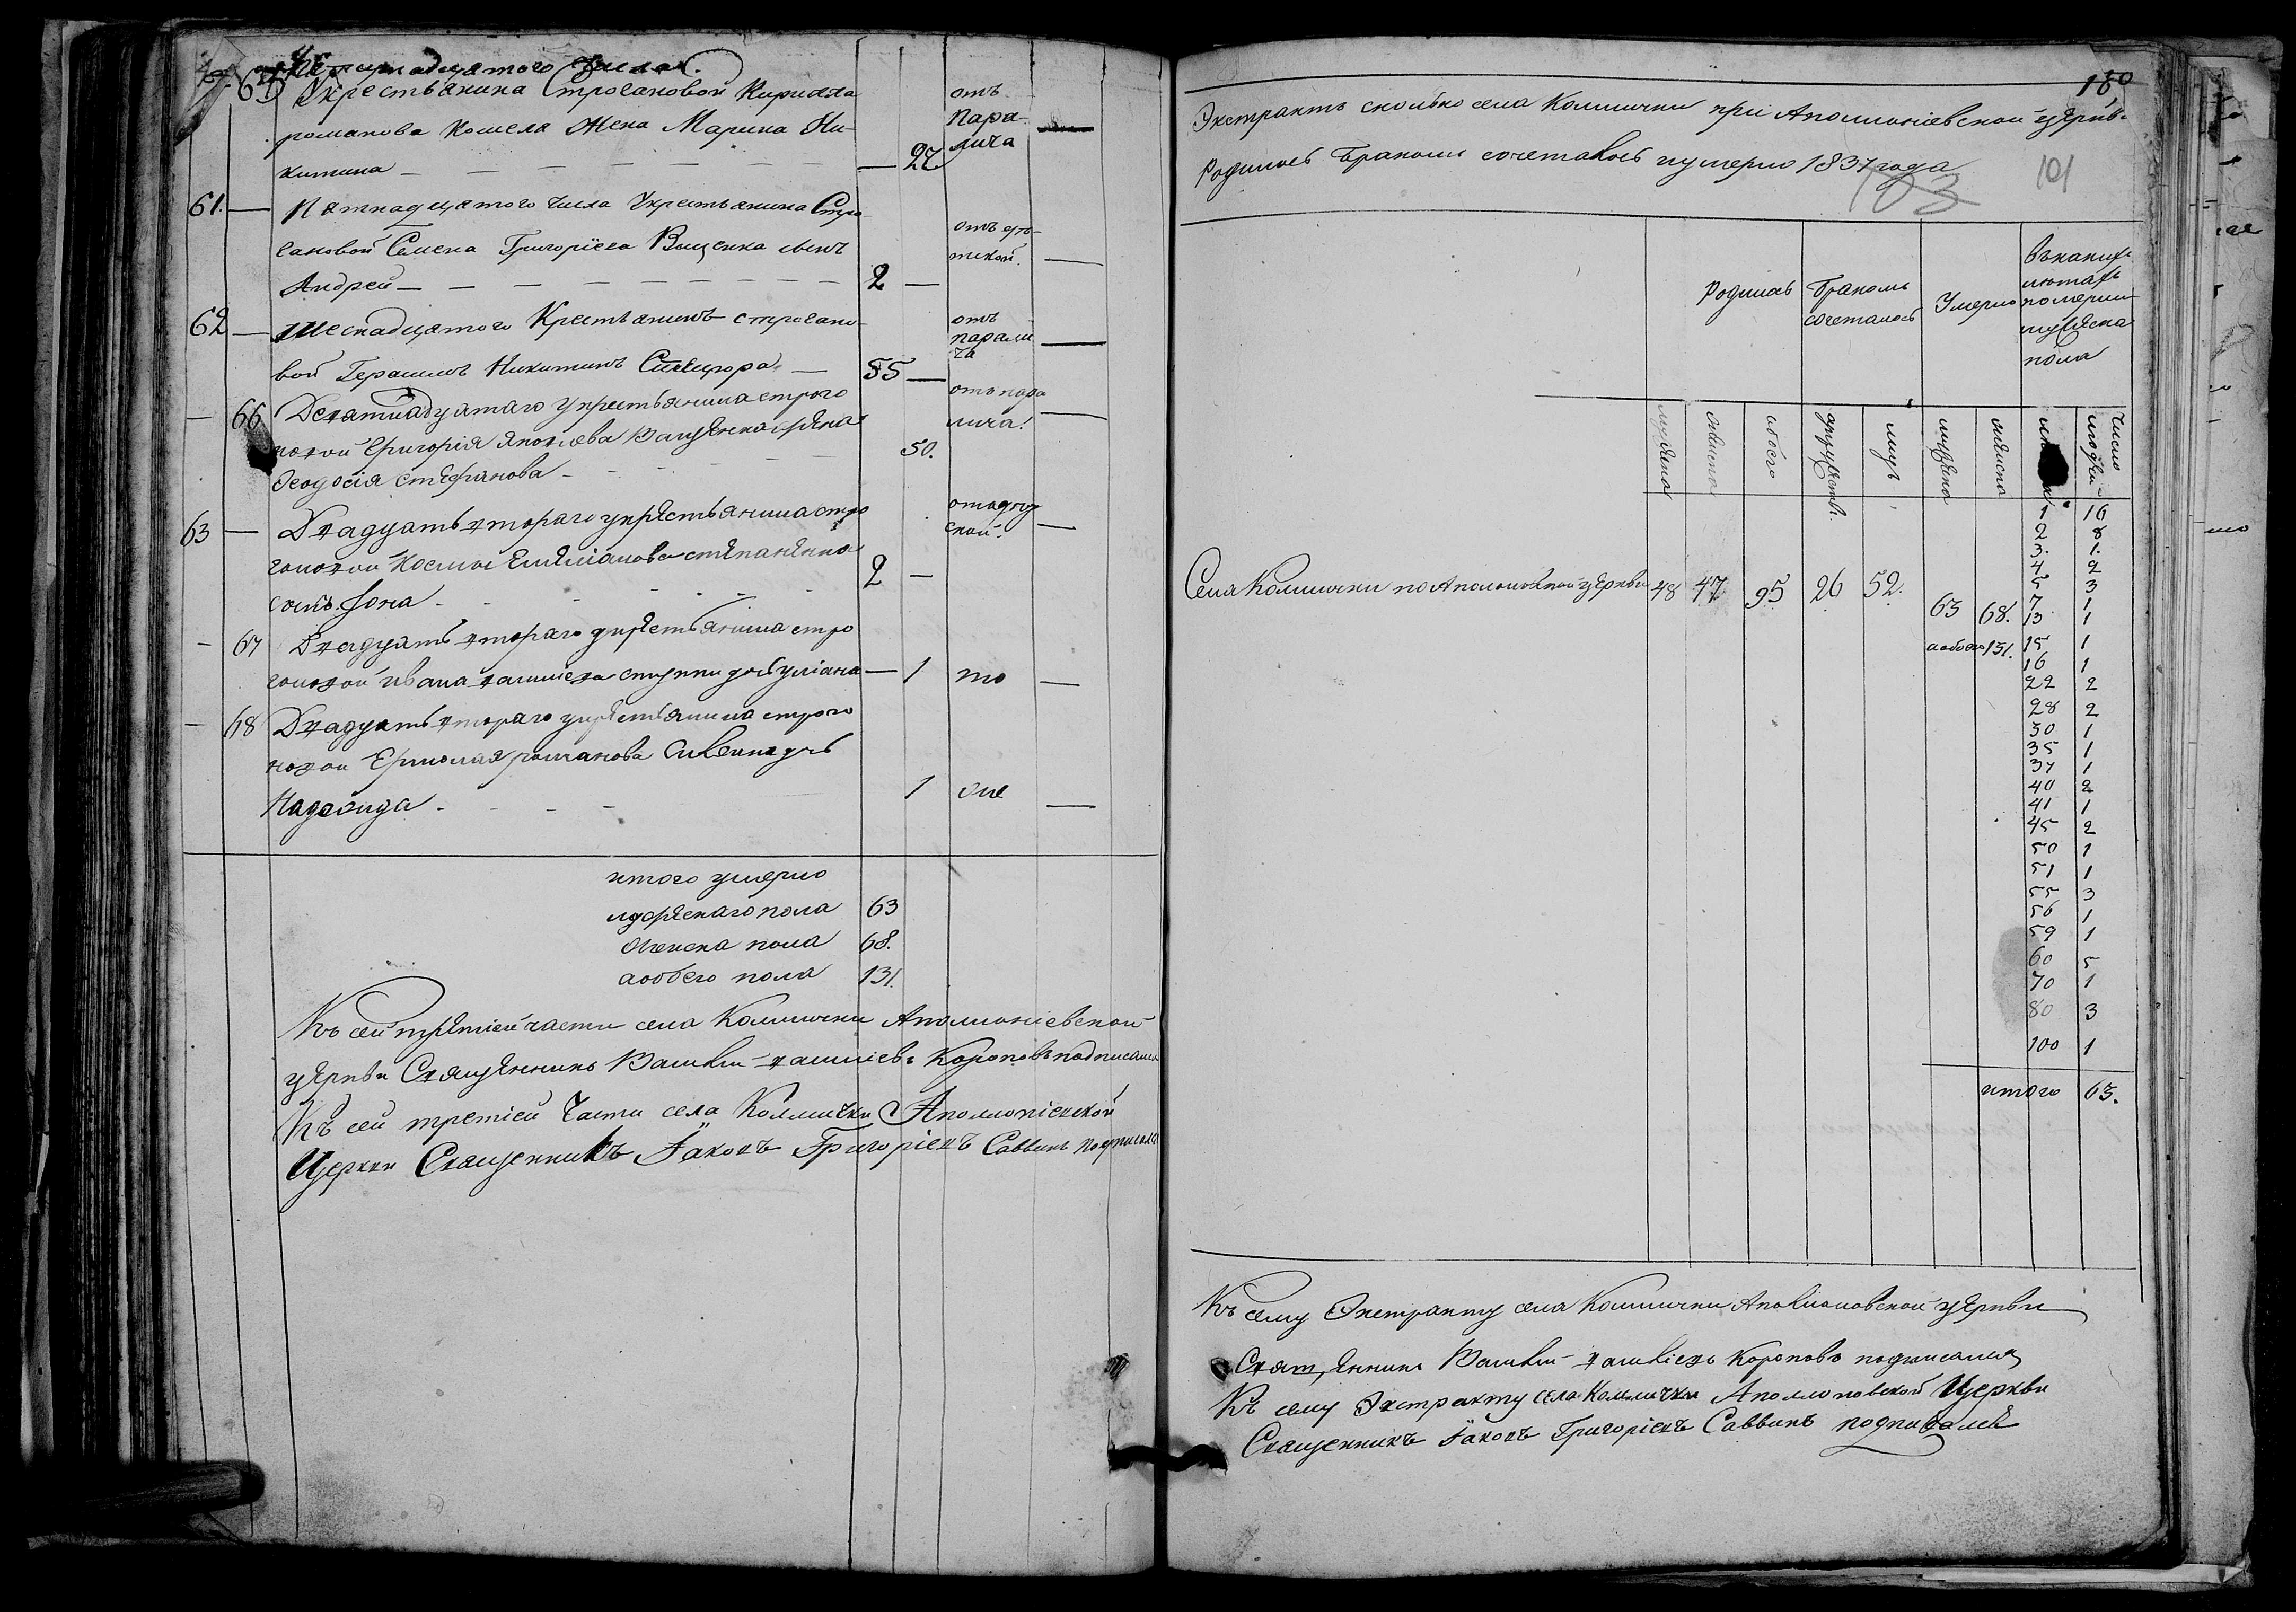 Четырнадцатого числа
65 Укрестьянина Строгановой Кирилла отъ
романова Кошеля Жена Марина Ни- пара-
китина — — — — — 27 лича —
61. — Пятнадцатого Числа Укрестьянина Стро-
гановой Семена Григоріева Вощенка сынъ отъ оспенной
Андрей — — — — — 2 — —
62 — Шеснадцатого Крестьянинъ строгано- отъ
вой Герасимъ Никитинъ 55 — паралича —
— 66 Девятнадцятаго укрестьянина строго отъ пара
новой Григорія Яковлева Ващенка жена 50. лича —
Ѳеодосія стефанова —
63 — Двадцать втораго укрестьянина стро
гоновой Космы Емеліанова степаненка 2 — —
сынъ Іона
— 67 Двадцать втораго укрестьянина стро
гоновой ивана дочь Уліана — 1 то —
— 68 Двадцать втораго укрестьянина строго
новой Ермолая романова дочь
Надежда 1 оне —
итого умерло
мужескаго пола 63
женска пола 68.
аобоего пола 131.
Къ сей третіей части села Коммички Аполлоніевской
церкви Священникъ Василій Короповъ подписался
Къ сей третіей Части села Коммички Аполлоніевской
Церкви Священникъ Іаковъ Григоріевъ Саввинъ подписался
180
Экстрактъ сколько села Коммички при Аполлоніевской церкви
Родилось Бракомъ сочеталось и умерло 1837 года
183 101
Родилось Бракомъ сочеталось Умерло въ какихъ лѣтахъ померли мужеска пола
мужена женска обоего супружеств. лицъ мужена женска число людей
Села Коммички по Аполлоновской церкви 48 47 95 26 52. 63 68.
аобоего 131.
1 16
2 8
3. 1.
4 2
5 3
7 1
13 1
15 1
16 1
22 2
28 2
30 1
35 1
37 1
40 2
41 1
45 2
50 1
51 1
55 3
56 1
59 1
60 5
70 1
80 3
100 1
итого 63.
Къ сему Экстракту села Коммички Аполлоновской церкви
Священникъ Василій Короповъ подписался
Къ сему Экстракту села Коммички Аполлоновской Церкви
Священникъ Іаковъ Григоріевъ Саввинъ подписался